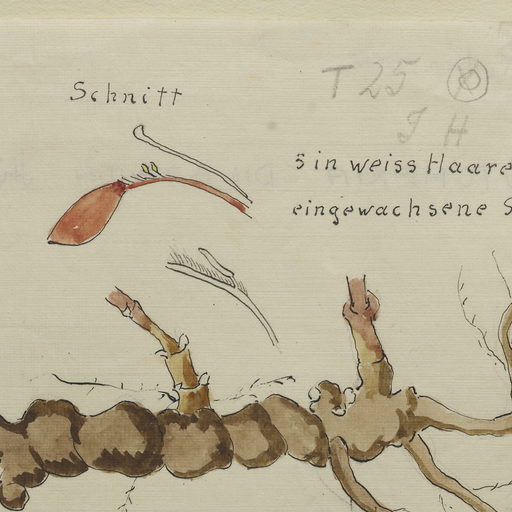 Schnitt
T 25
J H
5 in weiss Haare
eingewachsene S